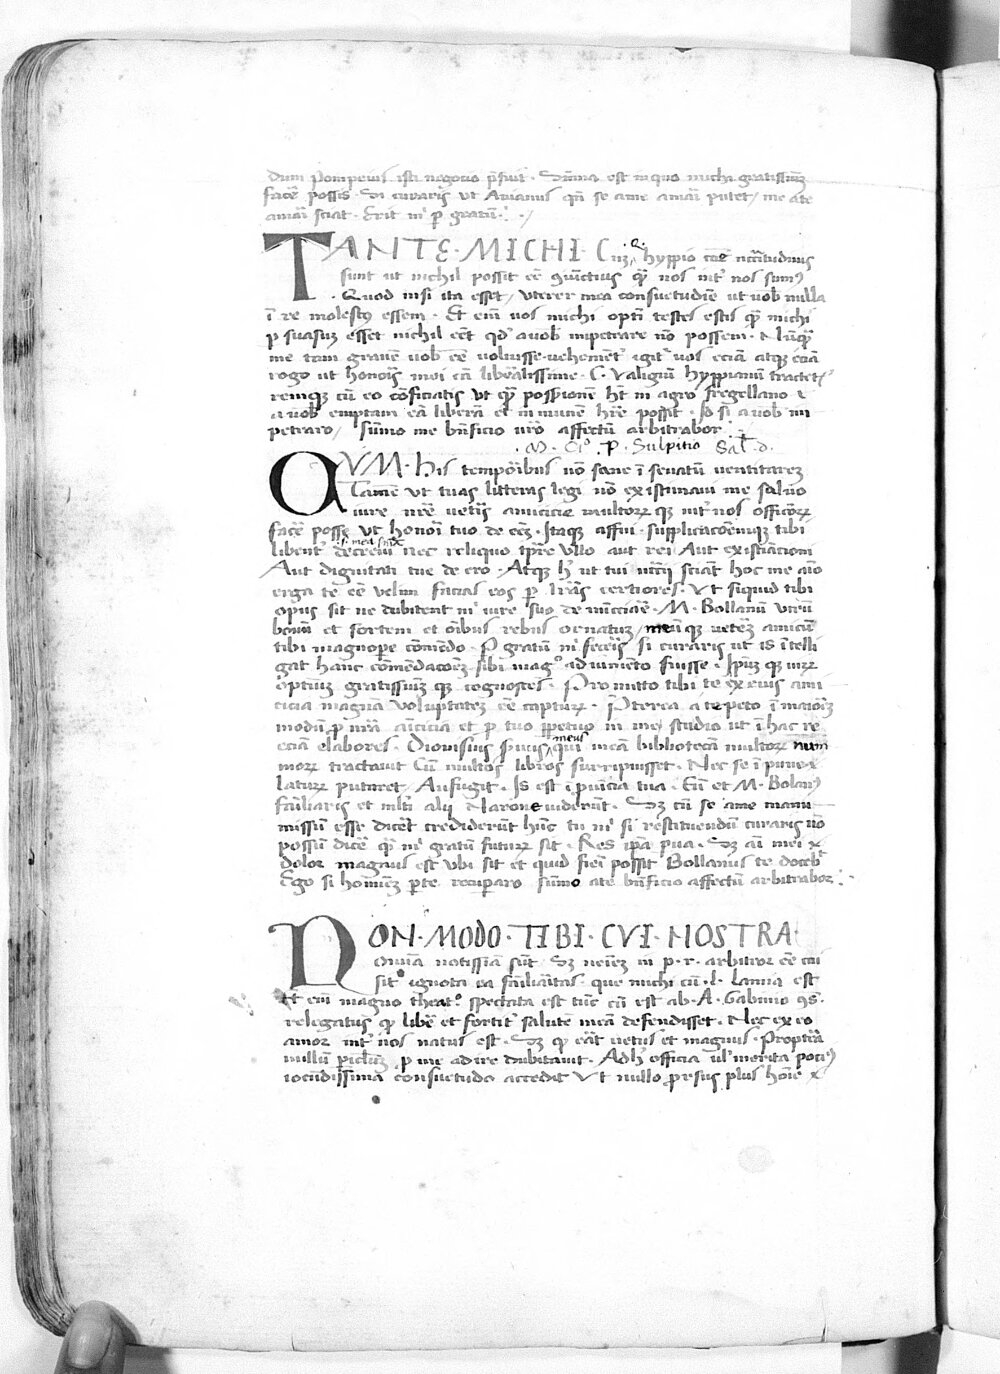 dum pompeius isti negotio p̄fuit · Summa est in quo michi gratissimū
facē possis · Si curaris ut Avianus qn̄ se a me amari putet / me a te
amari sciat · Erit m̄ p gratū · /
TANTE · MICHI · Cuʒ hyppio cāe nccītudinis
sunt ut nichil possit eē 9iūctius qȝ nos int' nos sum9
· Quod nisi ita esset / uterer mea consuetudīe ut uob nulla
ī re molestꝰ essem · Et eni uos michi optī testes estis qȝ michi
p suasuʒ esset nichil eēt qd' a uob impetrare nō possem · Nūqȝ
me tam grauem uob eē uoluisse · uehemēt' igit' uos eciā atqȝ eciā
rogo ut honoris mei cā liberalissime · C · Valgium hyppianū tractet'
remqȝ cū eo cōficiatis ut qȝ possessionē h̄t in agro fregellano
a uob emptam eā liberā et inmunē h̄re possit · Id si a uob im
petraro / summo me bn̄ficio ur̄o affectū arbitrabor
· M · Ci° · P · Sulpitio Sal̄ · d ·
QVM · His temporibus nō sane ī senatū uentitareʒ
Tamē ut tuas litteras legi nō existimaui me saluo
iure nr̄e uet'is amicicie multorȝ qȝ int' nos officiorȝ
facē posse ut honori tuo de eēʒ · Itaqȝ affui · supplicacōemqȝ tibi
libent' decreui nec reliquo tpr̄e ullo aut rei Aut existiacioni
Aut dignitati tue de ero · Atqȝ h' ut tui nccīi sciāt hoc me aīo
erga te eē uelim facias eos p lr̄as certiores · Ut siquid tibi
opus sit ne dubitent m' iure suo denūciare · M · Bollanū uirū
bonū et fortem et oībus rebus ornatuʒ / meūqȝ ueterē amicū
tibi magnopere cōmendo · P gratū m' feceris si curaris ut is ītelli
gat hanc cōmēdacōeʒ sibi mag° adiumēto fuisse · Ipūmqȝ uirȝ
optimū gratissimūqȝ cognosces · Promitto tibi te ex eius ami
cicia magnā uoluptateʒ eē capturȝ · P̄terea a te peto ī maiorē
modū p nr̄a amicicia et p tuo ppetuo in me studio ut ī hac re
eciā elabores · Dionisius seruus meus qui meā bibliotecā multorȝ num
morȝ tractauit Cū multos libros surripuisset · Nec se ī pune
laturȝ putaret Aufugit · Is est ī prouīcia tua · Eū et M · Bolan9
familiaris et m̄lti alij Narone uiderūt · Sʒ cū se a me manu
missum esse dicēt crediderūt hūc tu m' si restituendū curaris nō
possū dicē qȝ m' gratū futurȝ sit · Res ipā pua · Sʒ aī mei
dolor magnus est ubi sit et quid fieri possit Bollanus te docebt
Ego si homineʒ p te recuparo sūmo a te bn̄ficio affectū arbitrabor
NON · MODO · TIBI · CVI · NOSTRA
omnia notissīa sūt · Sʒ neīeʒ in p · r · arbitror eē cui
sit ignota ea familiaritas · que michi cū · l · Lamia est
Et eni magno theatº spectata est tūc cū est ab · A · Gabinio 9s̄
relegatus qȝ libē et fortit' salutē meā defendisset · Nec ex eo
amor int' nos natus est · Sʒ qȝ erāt uetus et magnus · Proptea
nullū piclm̄ p me adire dubitauit · Ad h' officia ul' merita poci9
iocundissima consuetudo accedit Ut nullo prsus plus hoīe